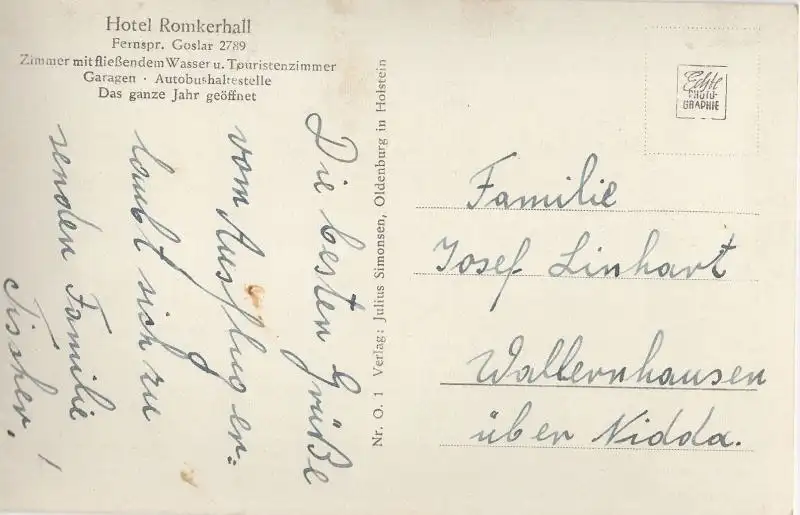 Hotel Romkerhall
Fernspr. Goslar 2789
Zimmer mit fließendem Wasser u. Touristenzimmer
Garagen · Autobushaltestelle
Das ganze Jahr geöffnet
Die besten Grüße
vom Ausflug er:
laubt sich zu
senden Familie
Fischer.!
Nr. O. 1 Verlag: Julius Simonsen, Oldenburg in Holstein
Echte
PHOTO-
GRAPHIE
Familie
Josef Linhart
Wallernhausen
über Nidda.